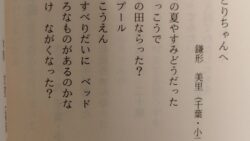 とりちゃんへ
鎌形 美里(千葉・小
の夏やすみどうだった
っこうで
の田ならった?
プール
こうえん
すべりだいに ベッド
ろなものがあるのかな
け ながくなった?